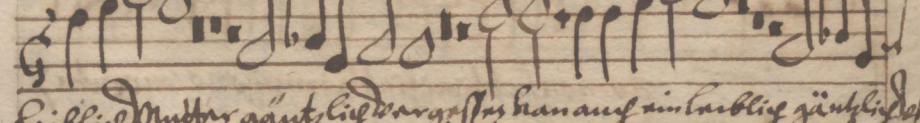 leiblich Mutter gäntzlich vergessen kan auch ein leiblich gäntzlich